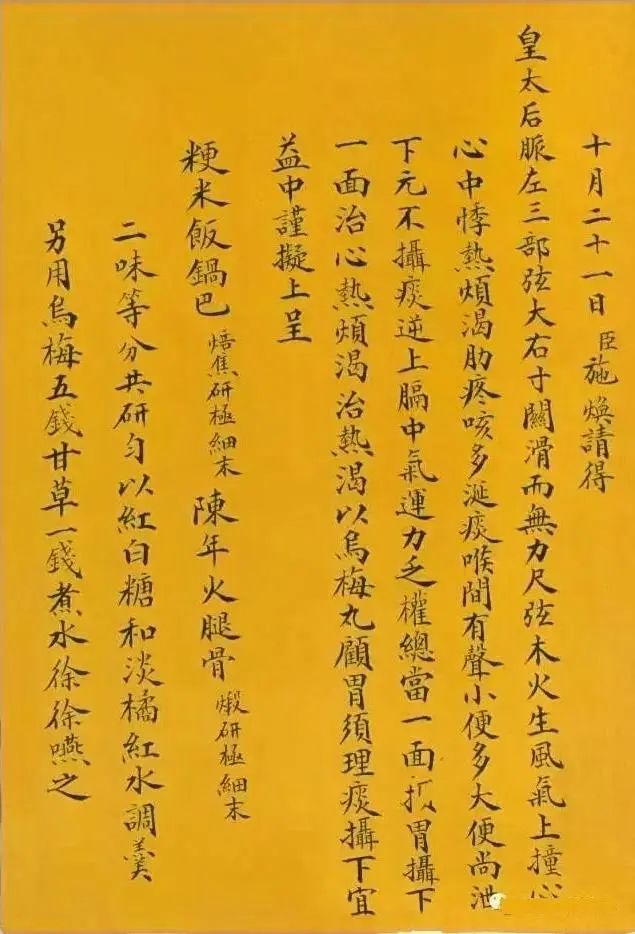 十月二十一日臣施煥請得
皇太后脈左三部弦大右寸關滑而無力尺弦木火生風氣上撞心
心中悸熱煩渴肋疼咳多涎痰喉間有聲小便多大便尚泄
下元不攝痰逆上膈中氣運力乏權總當一面扶胃攝下
一面治心熱煩渴治熱渴以烏梅丸顧胃須理痰攝下宜
益中謹擬上呈
粳米飯鍋巴 焙焦研極細末 陳年火腿骨 煅研極細末
二味等分共研匀以紅白糖和淡橘紅水調羹
另用烏梅五錢甘草一錢煮水徐徐嚥之